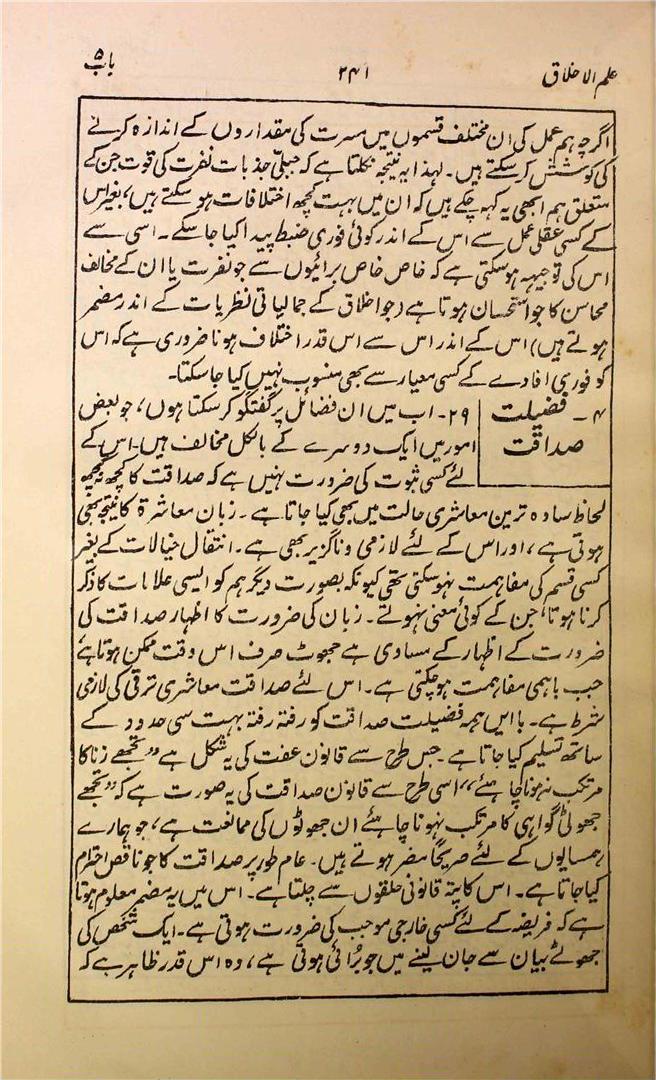 علم الاخلاق ۲۴۱ باب ۵
اگرچہ ہم عمل کی ان مختلف قسموں میں مسرت کی مقداروں کے اندازہ کرنے
کی کوشش کر سکتے ہیں۔ لہذا یہ نتیجہ نکلتا ہے کہ جبلی جذبات نفرت کی قوت جن کے
متعلق ہم ابھی یہ کہہ چکے ہیں کہ ان میں بہت کچھ اختلافات ہو سکتے ہیں، بغیر اس
کے کسی عقلی عمل سے اس کے اندر کوئی فوری ضبط پیدا کیا جا سکے۔ اسی سے
اس کی توجیہہ ہو سکتی ہے کہ خاص خاص برائیوں سے جو نفرت یا ان کے مخالف
محاسن کا جو استحسان ہوتا ہے (جو اخلاق کے جمالیاتی نظریات کے اندر مضمر
ہوتے ہیں) اس کے اندر اس سے اس قدر اختلاف ہونا ضروری ہے کہ اس
کو فوری افادے کے کسی معیار سے بھی منسوب نہیں کیا جا سکتا۔
۴۔ فضیلت صداقت
۲۹۔ اب میں ان فضائل پر گفتگو کر سکتا ہوں، جو بعض
امور میں ایک دوسرے کے بالکل مخالف ہیں۔ اس کے
لئے کسی ثبوت کی ضرورت نہیں ہے کہ صداقت کا کچھ نہ کچھ
لحاظ سادہ ترین معاشری حالت میں بھی کیا جاتا ہے۔ زبان معاشرۃ کا نتیجہ بھی
ہوتی ہے، اور اس کے لئے لازمی و ناگزیر بھی ہے۔ انتقال خیالات کے بغیر
کسی قسم کی مفاہمت نہو سکتی تھی کیونکہ بصورت دیگر ہم کو ایسی علامات کا ذکر
کرنا ہوتا، جن کے کوئی معنی نہوتے۔ زبان کی ضرورت کا اظہار صداقت کی
ضرورت کے اظہار کے مساوی ہے جھوٹ صرف اس وقت ممکن ہوتا ہے
جب باہمی مفاہمت ہو چکتی ہے۔ اس لئے صداقت معاشری ترقی کی لازمی
شرط ہے۔ با ایں ہمہ فضیلت صداقت کو رفتہ رفتہ بہت سی حدود کے
ساتھ تسلیم کیا جاتا ہے۔ جس طرح سے قانون عفت کی یہ شکل ہے ”تجھے زنا کا
مرتکب نہ ہونا چاہئے“ اسی طرح سے قانون صداقت کی یہ صورت ہے کہ ”تجھے
جھوٹی گواہی کا مرتکب نہونا چاہئے ان جھوٹوں کی ممانعت ہے، جو ہمارے
ہمسایوں کے لئے صریحاً مضر ہوتے ہیں۔ عام طور پر صداقت کا جو ناقص احترام
کیا جاتا ہے۔ اس کا پتہ قانونی حلقوں سے چلتا ہے۔ اس میں یہ مضمر معلوم ہوتا
ہے کہ فریضہ کے لئے کسی خارجی موجب کی ضرورت ہوتی ہے۔ ایک شخص کی
جھوٹے بیان سے جان لینے میں جو برُائی ہوتی ہے، وہ اس قدر ظاہر ہے کہ